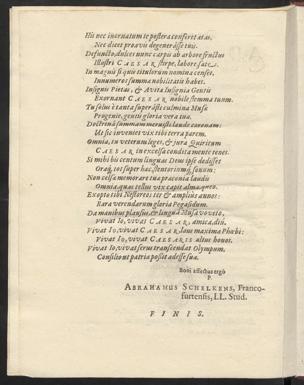 Hic nec incruatum te postera conferet ætas,
Nec dicet proavis degenerasse tuis.
Defunctos dulces nunc carpis ab arbore fructus
Illustri CÆSAR stirpe, labore satos.
In magnis si quis titulorum nomina censet,
Innumeros summa nobilitatis habet.
Insignis Pietas, & Avita Insignia Gentis
Exornant CÆSAR nobile stemma tuum.
Tu solus es tanta super
Progenie, gentis gloria vera tuæ.
Doctrina summam meruisti laude coronam:
Ut sic invenies vix tibi terra parem.
Omnia, tu veterum leges, & jura Quiritum
CÆSAR in excelsa condita mente tenes.
Si mihi bis centum linguas Deus ipse dedisset
Oraq; tot super hac,
Non celsa memorare tua præconia laudis
Omnia, quas tellus vix capit alma, queo.
Exopto tibi Nestoreos ter & amplius annos:
Rara verendarum gloria Pegasidum.
Da manibus plausus, & lingua Musa voveto,
Vivat Io, vivat CÆSAR, amica, diu.
Vivat Io, vivat CÆSAR laus maxima Phœbi:
Vivat Io, vivat CÆSARIS altus honos.
Vivat Io, vivat serus transcendat Olympum.
Consiliout patria possit adesse sua.
Boni affectus ergò
P.
ABRAHAMUS SCHELKENS, Franco-
furtensis, LL. Stud.
FINIS.